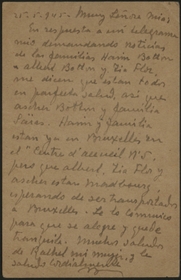 25.5.945.- Muy Señor Mio:
En respuesta a mi telegrama
demandando noticias
de las familias Haim Botton
Albert Botton y Tio Flor,
me dicen que estan todos
en perfecta salud, asi que
ascher Botton y familia
Haim y familia
estan ya en Bruxelles en
el "Centre d'accueil Nº 5,
pero que albert, Tio Flor y
ascher estan
esperando de ser transportados
a Bruxelles. Le lo comunico
para que se alegre y quede
tranquilo. Muchos saludos
de Rachel mi mujer, y le
saluda cordialmente